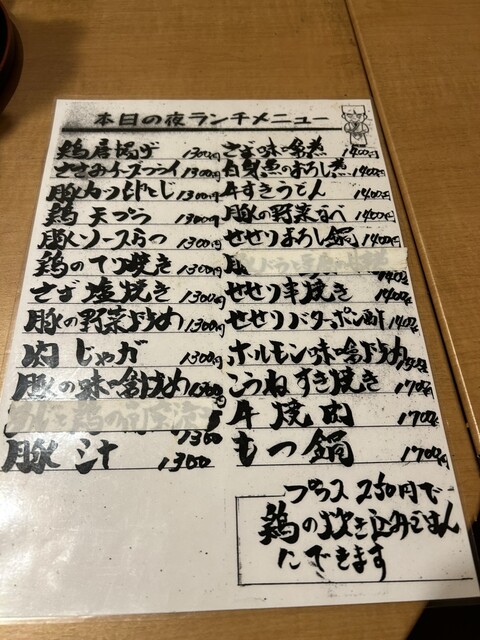 本日の夜ランチメニュー
鶏唐揚げ 1300円
ささみチーズフライ 1300円
豚カツ卵とじ 1300円
鶏天ぷら 1300円
豚ソースカツ 1300円
鶏のてり焼き 1300円
さば塩焼き 1300円
豚の野菜炒め 1300円
肉じゃが 1300円
豚の味噌炒め 1300円
1300
豚汁 1300
さば味噌煮 1400円
白身魚のおろし煮 1400円
牛すきうどん 1400円
豚の野菜なべ 1400円
せせりおろし鍋 1400円
せせり串焼き 1400円
せせりバターポン酢 1400円
ホルモン味噌炒め
こうねすき焼き 1700円
牛焼肉 1700円
もつ鍋 1700円
プラス250円で
鶏の炊き込みごはん
にできます